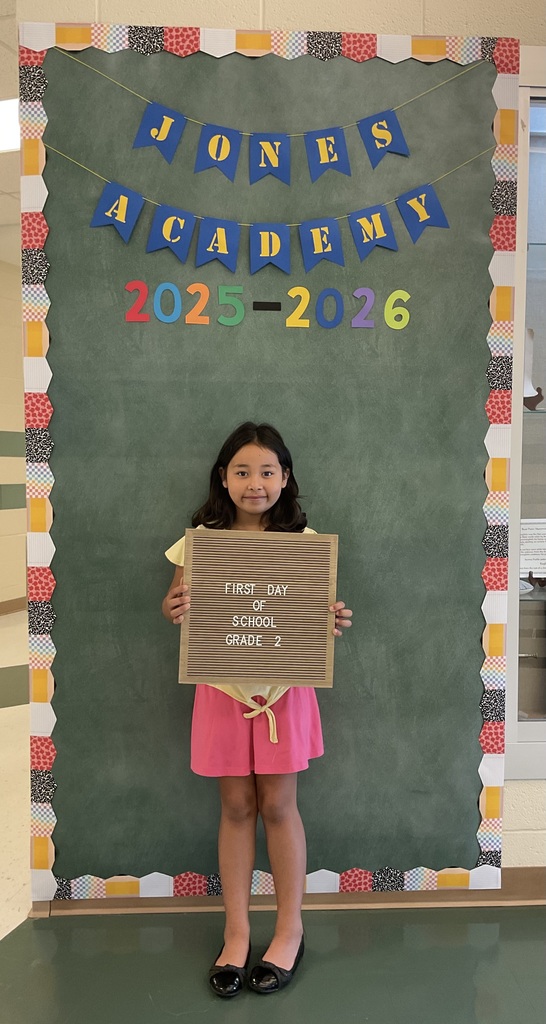 JONES
ACADEMY
2025-2026
FIRST DAY
OF
SCHOOL
GRADE 2